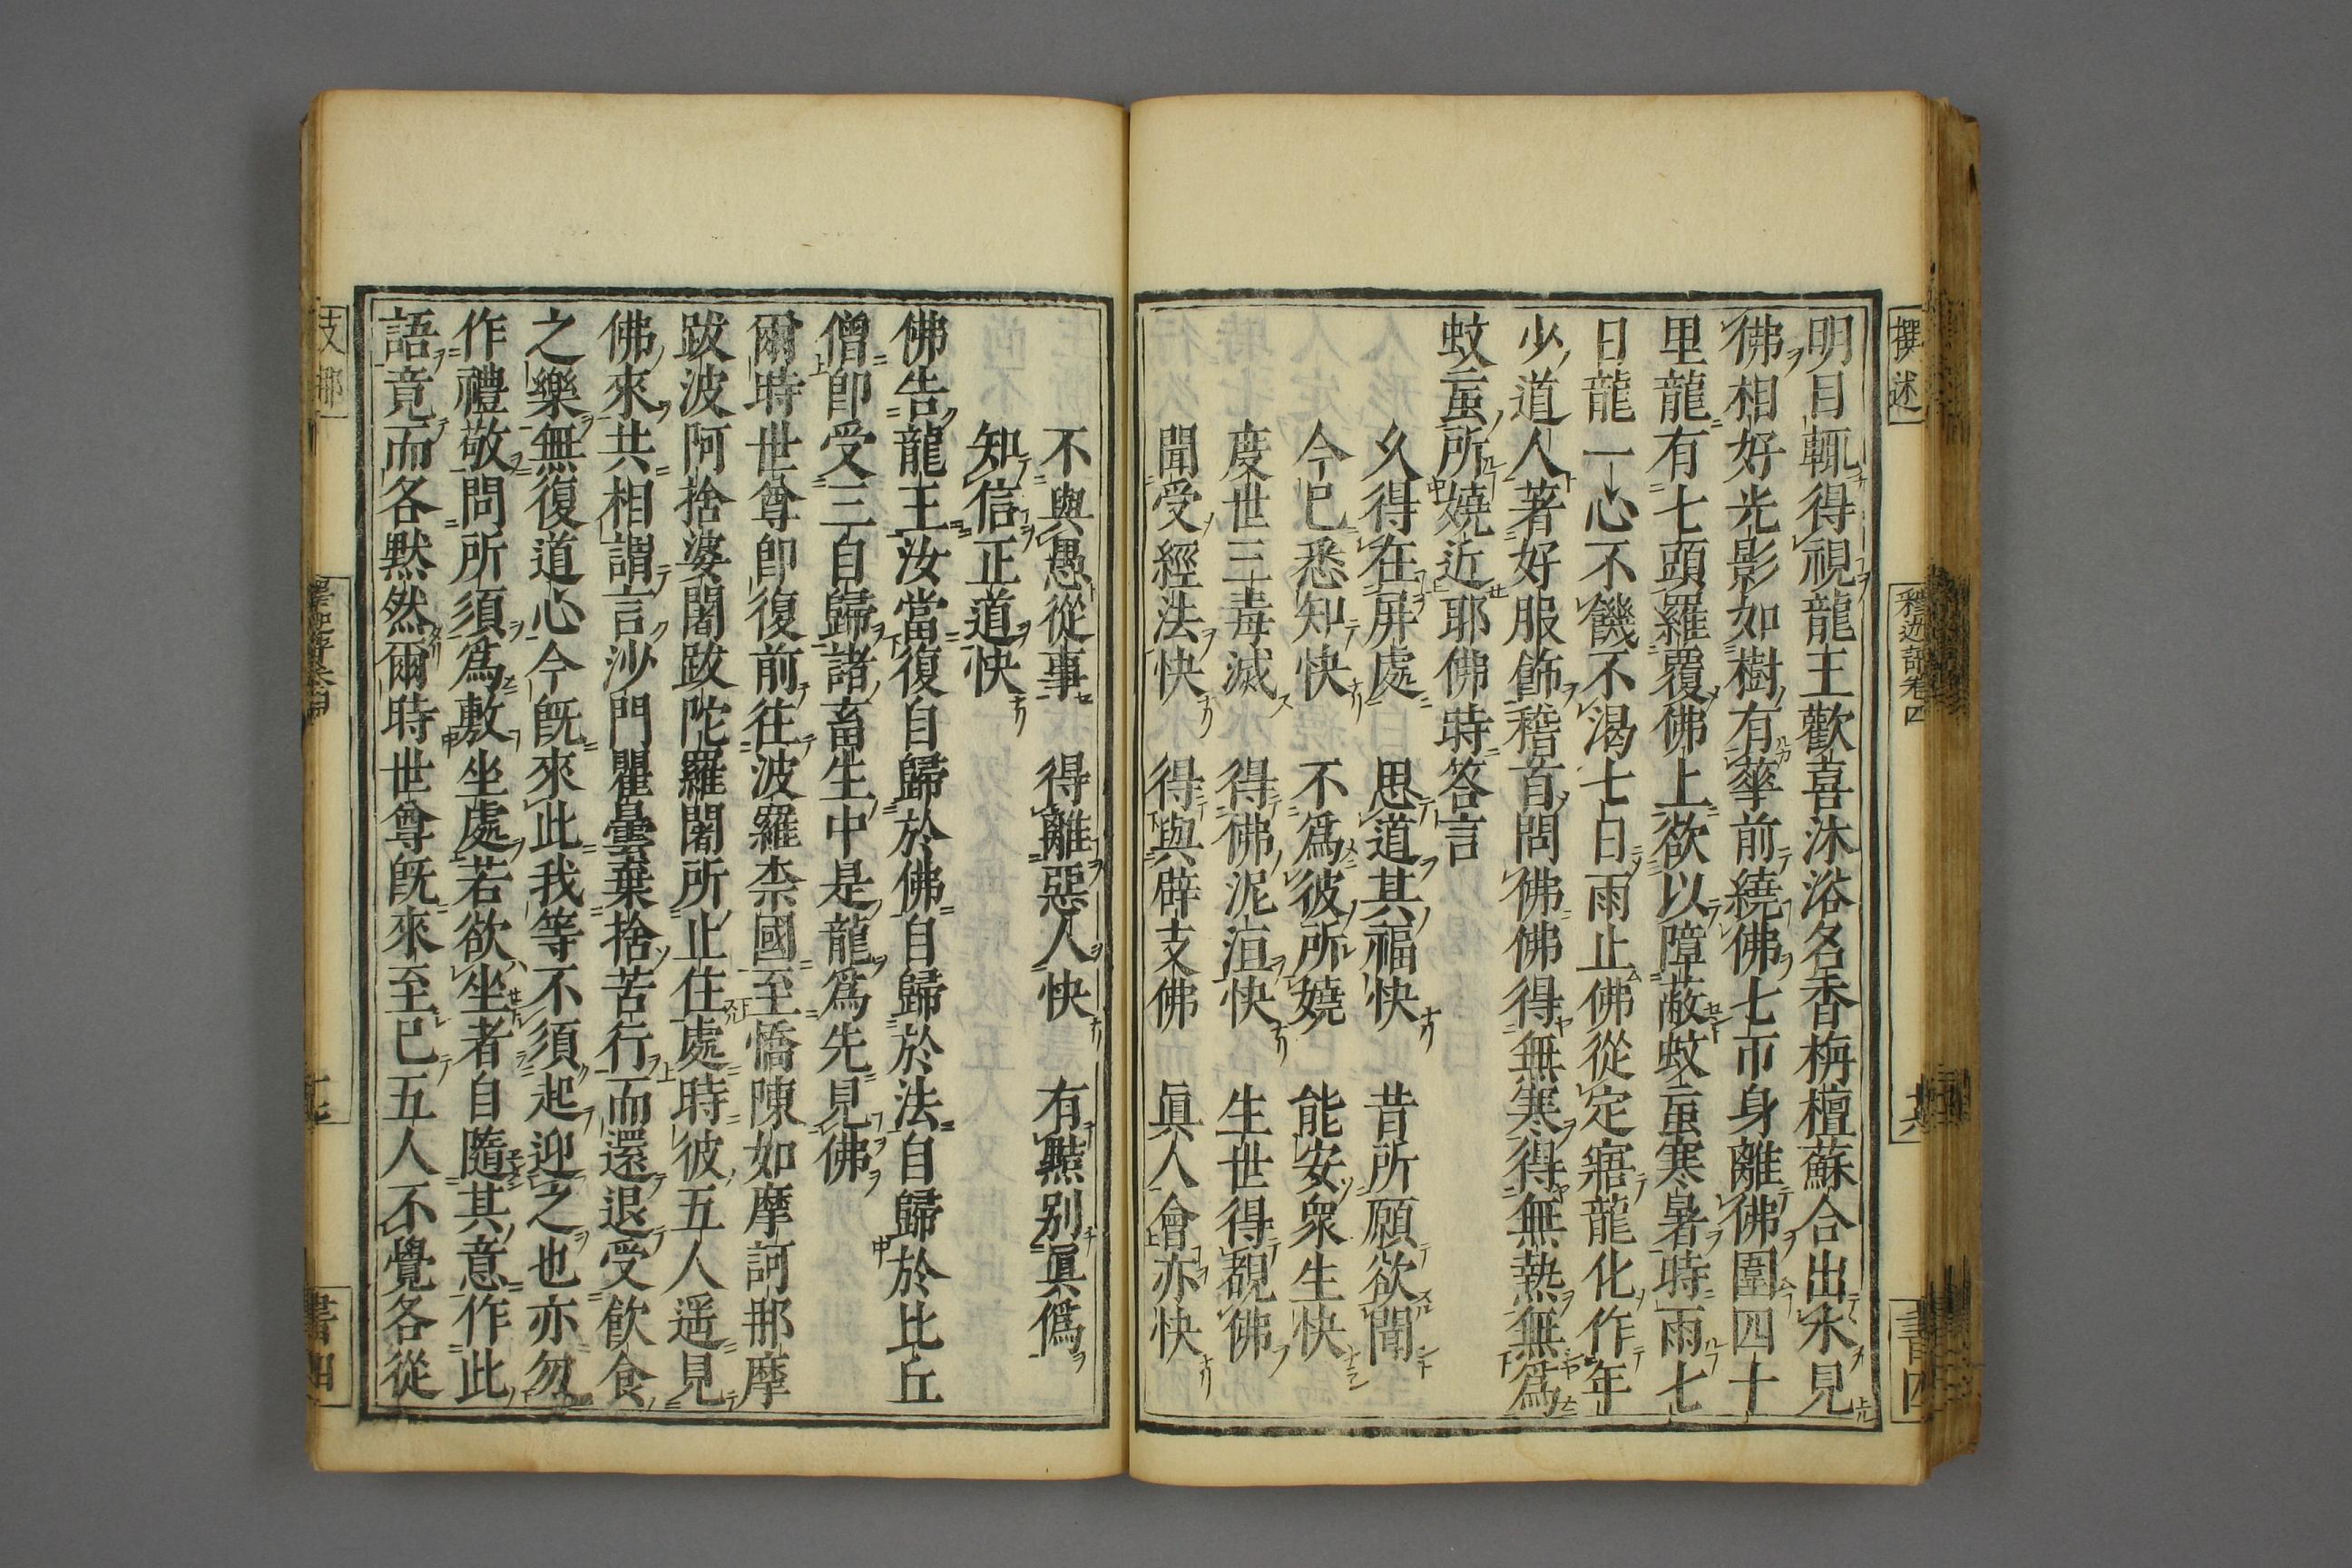 撰述
釋迦譜卷四
共
書四
明目輒得視龍王歡喜沐浴名香栴檀蘇合出水見
佛相好光影如樹有華前繞佛七帀身離佛圍四十
里龍有七頭羅覆佛上欲以障蔽蚊䖟寒暑時雨七
日龍一心不饑不渴七日雨止佛從定寤龍化作年
少道人著好服飾稽首問佛佛得無寒得無熱無爲
蚊䖟所嬈近耶佛時答言
久得在屏處　思道其福快　昔所願欲聞
今已悉知快　不爲彼所嬈　能安衆生快
度世三毒滅　得佛泥洹快　生世得覩佛
聞受經法快　得與辟支佛　眞人會亦快
不與愚從事　得離惡人快　有黠别眞僞
知信正道快
佛告龍王汝當復自歸於佛自歸於法自歸於比丘
僧即受三自歸諸畜生中是龍爲先見佛
爾時世尊即復前往波羅柰國至憍陳如摩訶那摩
跋波阿捨婆闍跋陀羅闍所止住處時彼五人遥見
佛來共相謂言沙門瞿曇棄捨苦行而還退受飲食
之樂無復道心今旣來此我等不須起迎之也亦勿
作禮敬問所須爲敷坐處若欲坐者自隨其意作此
語竟而各黙然爾時世尊旣來至已五人不覺各從
支那
書四